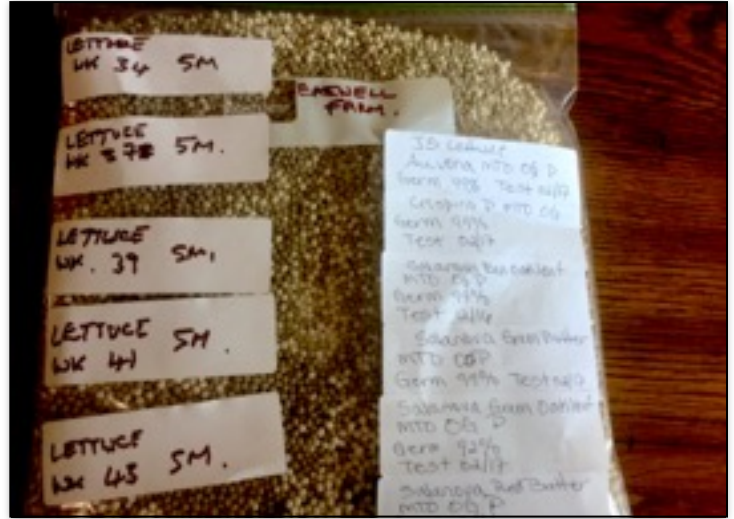 LETTUCE
WK 34 5M
LETTUCE
WK 37 5M.
LETTUCE
WK. 39 5M,
LETTUCE
WK 41 5M.
LETTUCE
WK 43 5M.
FARM.
JS Lettuce
Aurora MTO OG P
Germ 99% Test 02/17
Crispira P MTO OG
Germ 99%
Test 02/17
Salanova Red Oakleaf
MTO OG P
Germ 99%
Test
Salanova Green Butter
MTO OG P
Germ 99% Test
Salanova Green Oakleaf
MTO OG P
Germ 92%
Test 02/17
Salanova Red Butter
MTO OG P